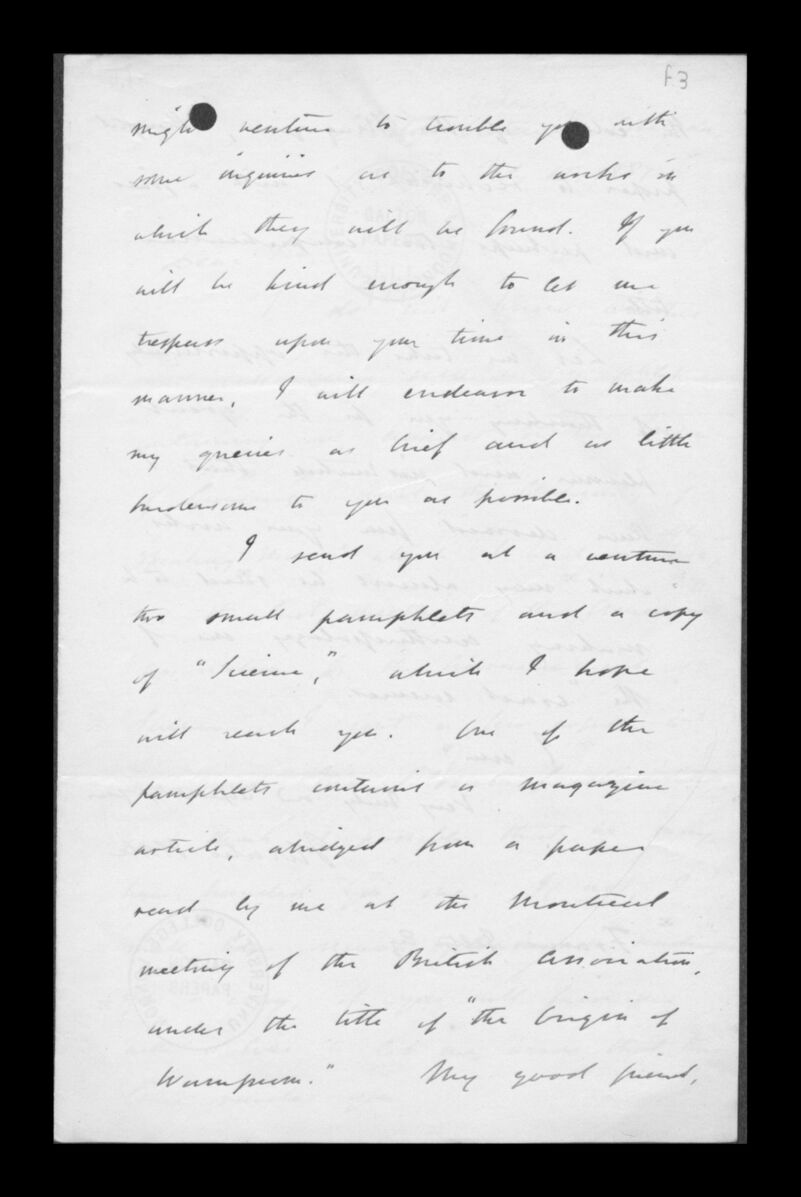 f3
might venture to trouble you with
some inquiries as to the works in
which they will be found. If you
will be kind enough to let me
trespass upon your time in this
manner, I will endeavor to make
my queries as brief and as little
burdensome to you as possible.
I send you at a venture
two small pamphlets and a copy
of "Science," which I hope
will reach you. One of the
pamphlets contains a magazine
article, abridged from a paper
read by me at the Montreal
meeting of the British Association,
under the title of "The Origin of
Wampum." My good friend,